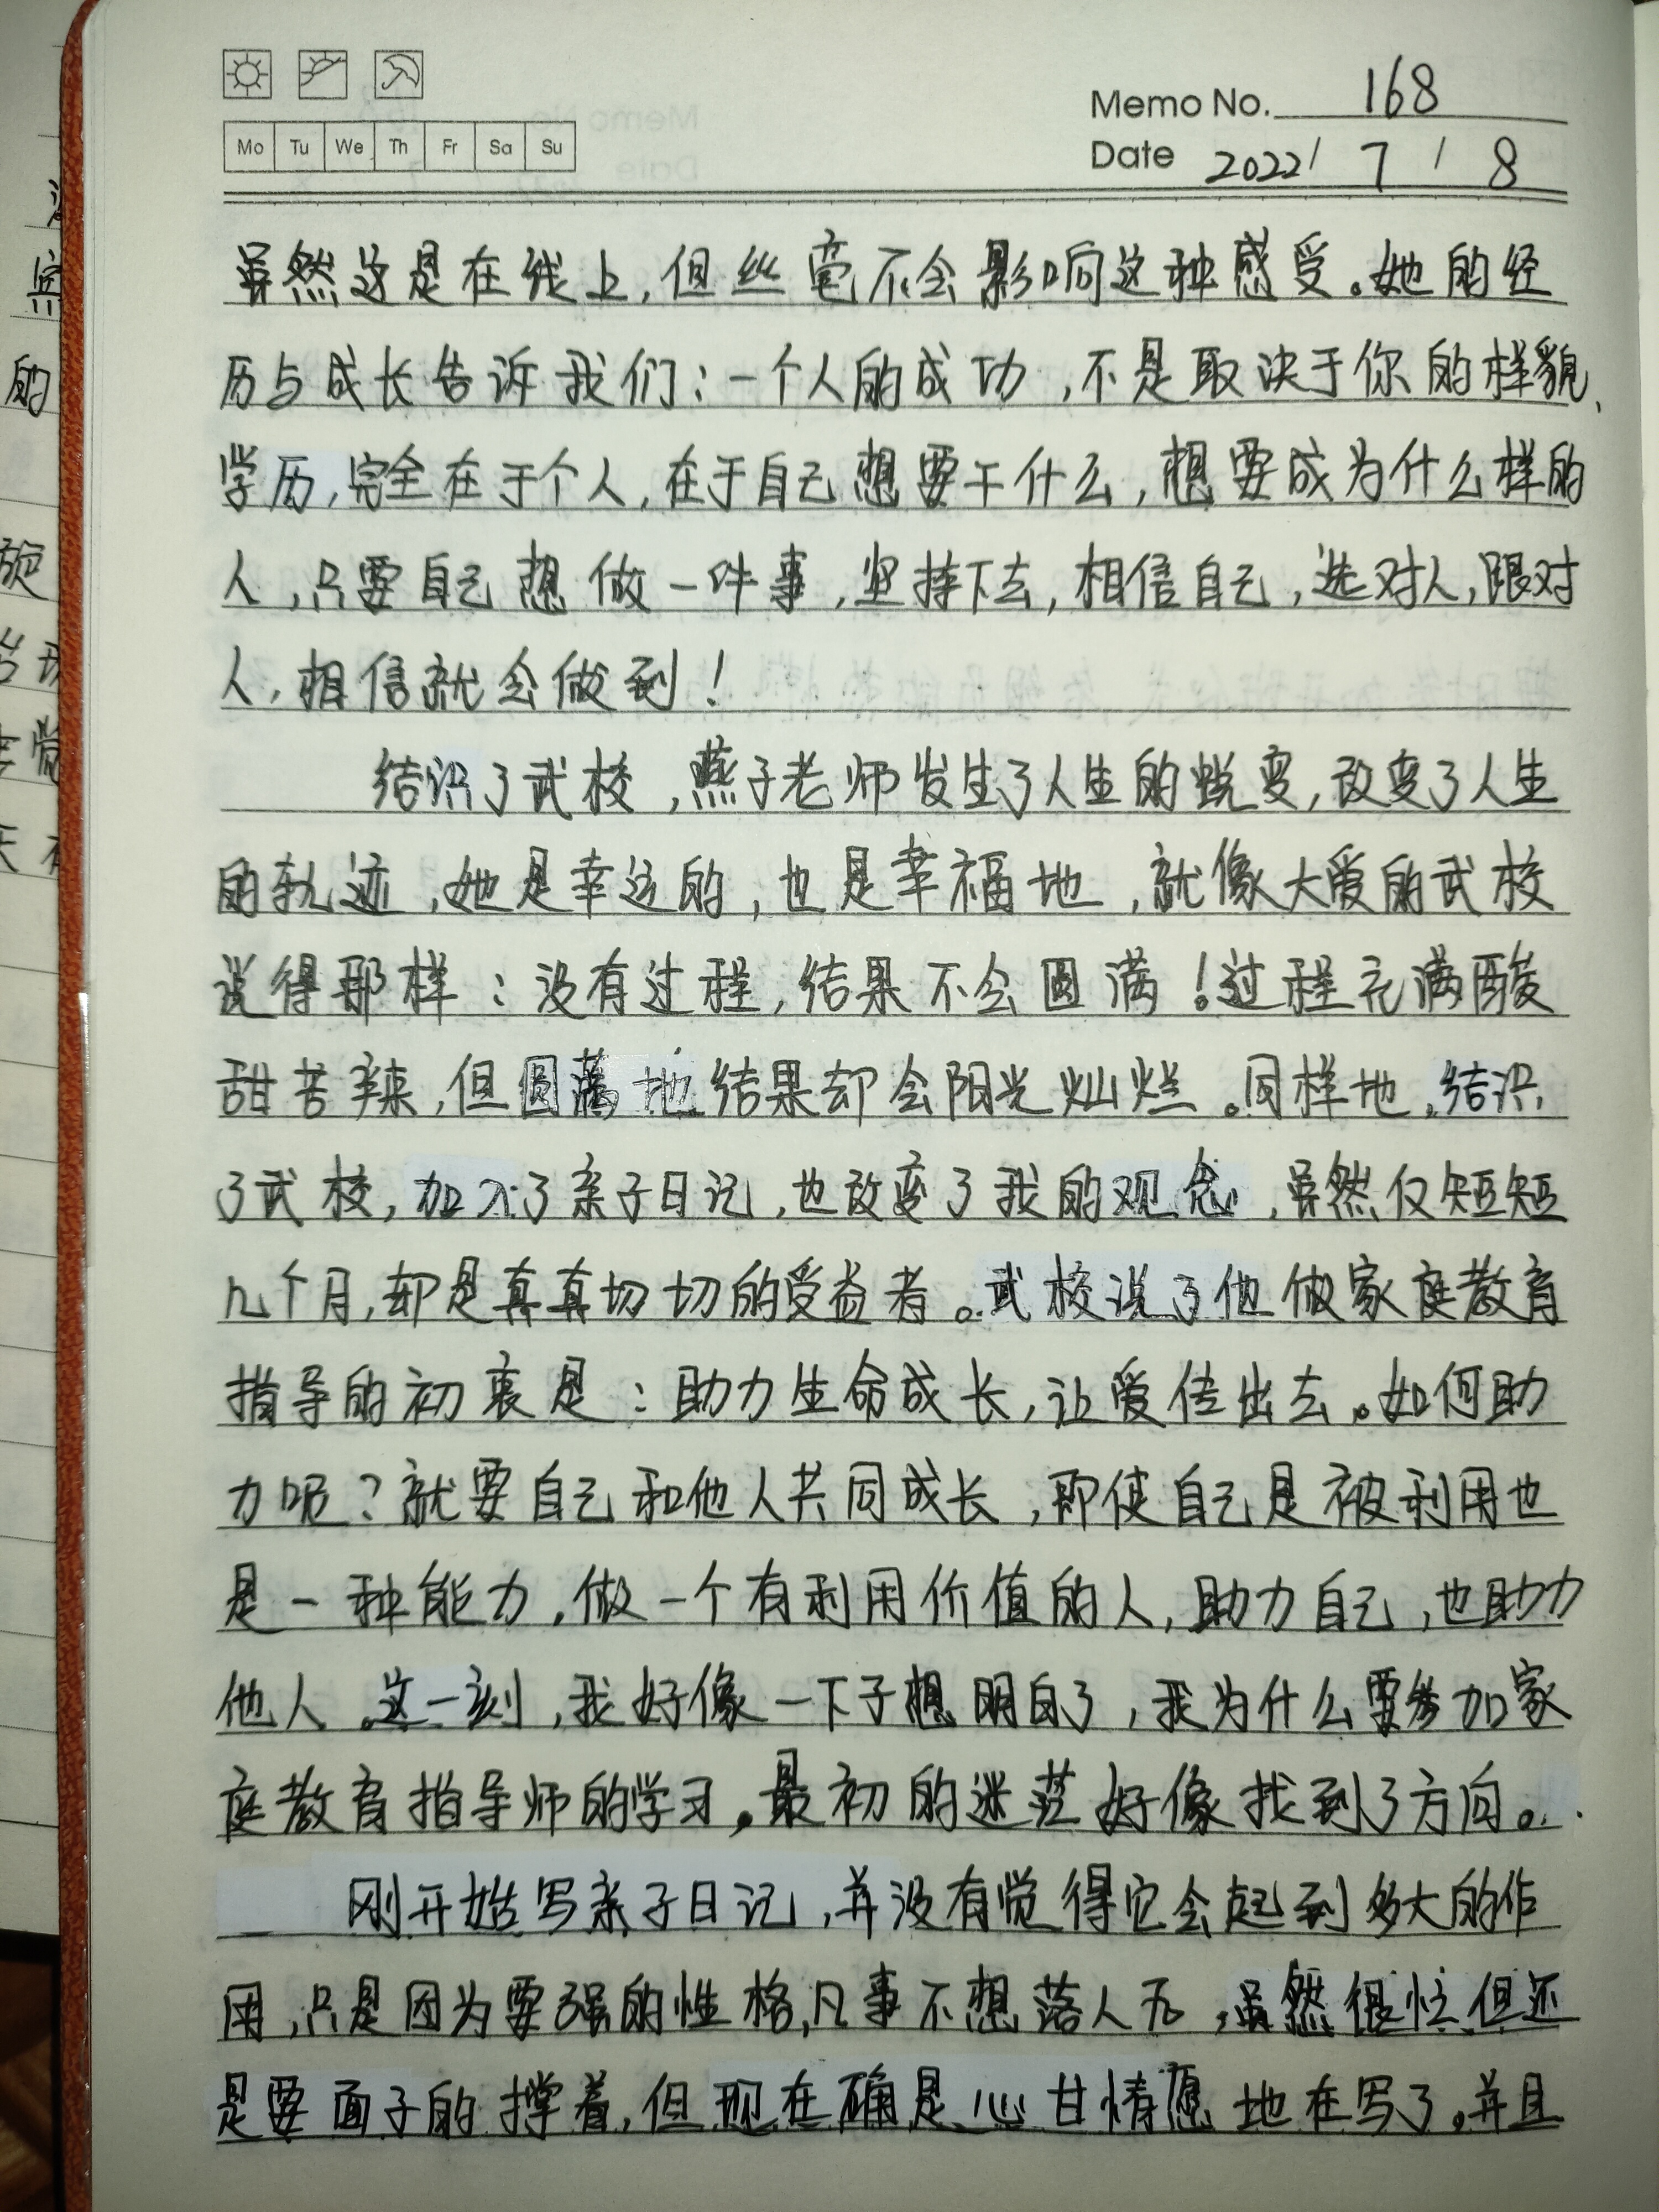 Memo No. 168
Mo Tu We Th Fr Sa Su
Date 2022/ 7 / 8
虽然这是在线上,但丝毫不会影响这种感受。她的经
历与成长告诉我们:一个人的成功,不是取决于你的样貌、
学历,完全在于个人,在于自己想要干什么,想要成为什么样的
人,只要自己想做一件事,坚持下去,相信自己,选对人,跟对
人,相信就会做到!
结识了武校,燕子老师发生了人生的蜕变,改变了人生
的轨迹,她是幸运的,也是幸福地,就像大爱的武校
说得那样:没有过程,结果不会圆满!过程充满酸
甜苦辣,但圆满地结果却会阳光灿烂。同样地,结识
了武校,加入了亲子日记,也改变了我的观念,虽然仅短短
几个月,却是真真切切的受益者。武校说了他做家庭教育
指导的初衷是:助力生命成长,让爱传出去。如何助
力呢?就要自己和他人共同成长,即使自己是被利用也
是一种能力,做一个有利用价值的人,助力自己,也助力
他人。这一刻,我好像一下子想明白了,我为什么要参加家
庭教育指导师的学习。最初的迷茫好像找到了方向。
刚开始写亲子日记,并没有觉得它会起到多大的作
用,只是因为要强的性格,凡事不想落人后,虽然很忙但还
是要面子的撑着,但现在确是心甘情愿地在写了。并且
的
旋